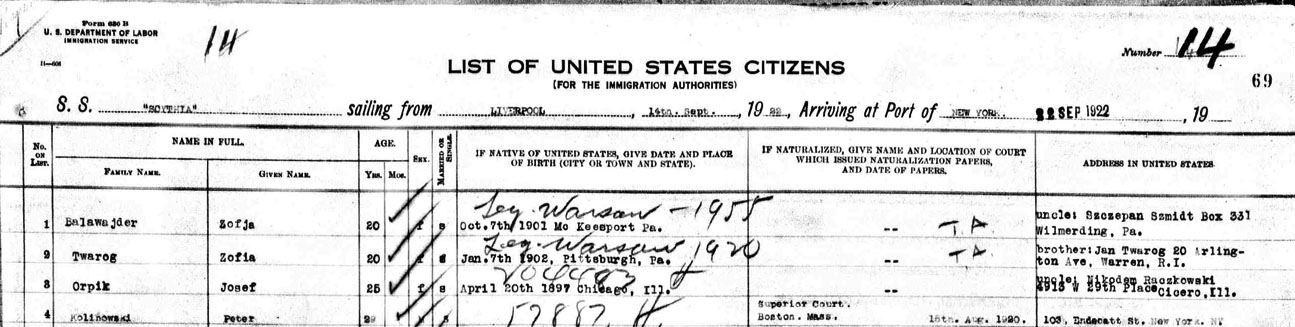 Form 630 B
U. S. DEPARTMENT OF LABOR
IMMIGRATION SERVICE
14
Number 14
69
LIST OF UNITED STATES CITIZENS
(FOR THE IMMIGRATION AUTHORITIES)
S. S. "SCYTHIA" sailing from LIVERPOOL, 14th. Sept., 1922, Arriving at Port of NEW YORK. 22 SEP 1922, 19
No. ON LIST. NAME IN FULL. FAMILY NAME. GIVEN NAME. AGE. YRS. MOS. SEX. MARRIED OR SINGLE. IF NATIVE OF UNITED STATES, GIVE DATE AND PLACE OF BIRTH (CITY OR TOWN AND STATE). IF NATURALIZED, GIVE NAME AND LOCATION OF COURT WHICH ISSUED NATURALIZATION PAPERS, AND DATE OF PAPERS. ADDRESS IN UNITED STATES
Leg. Warsaw - 1955
1 Balawajder Zofja 20 f s Oct.7th 1901 Mc Keesport Pa. -- T.A. uncle: Szczepan Szmidt Box 331
Wilmerding, Pa.
Leg. Warsaw 1920
2 Twarog Zofia 20 f s Jan.7th 1902, Pittsburgh, Pa. -- T.A. brother: Jan Twarog 20 Arling-
ton Ave, Warren, R.I.
3 Orpik Josef 25 f s April 20th 1897 Chicago, Ill. -- uncle: Nikodem Raczkowski
4913 W 29th Place Cicero, Ill.
4 Kolinowski Peter 29 s Superior Court.
Boston. Mass. 16th. Aug. 1920. 103, Endecatt St. New York. NY